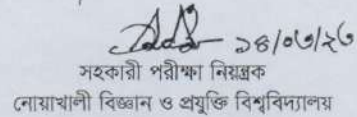 ১৪/০৩/২৩
সহকারী পরীক্ষা নিয়ন্ত্রক
নোয়াখালী বিজ্ঞান ও প্রযুক্তি বিশ্ববিদ্যালয়